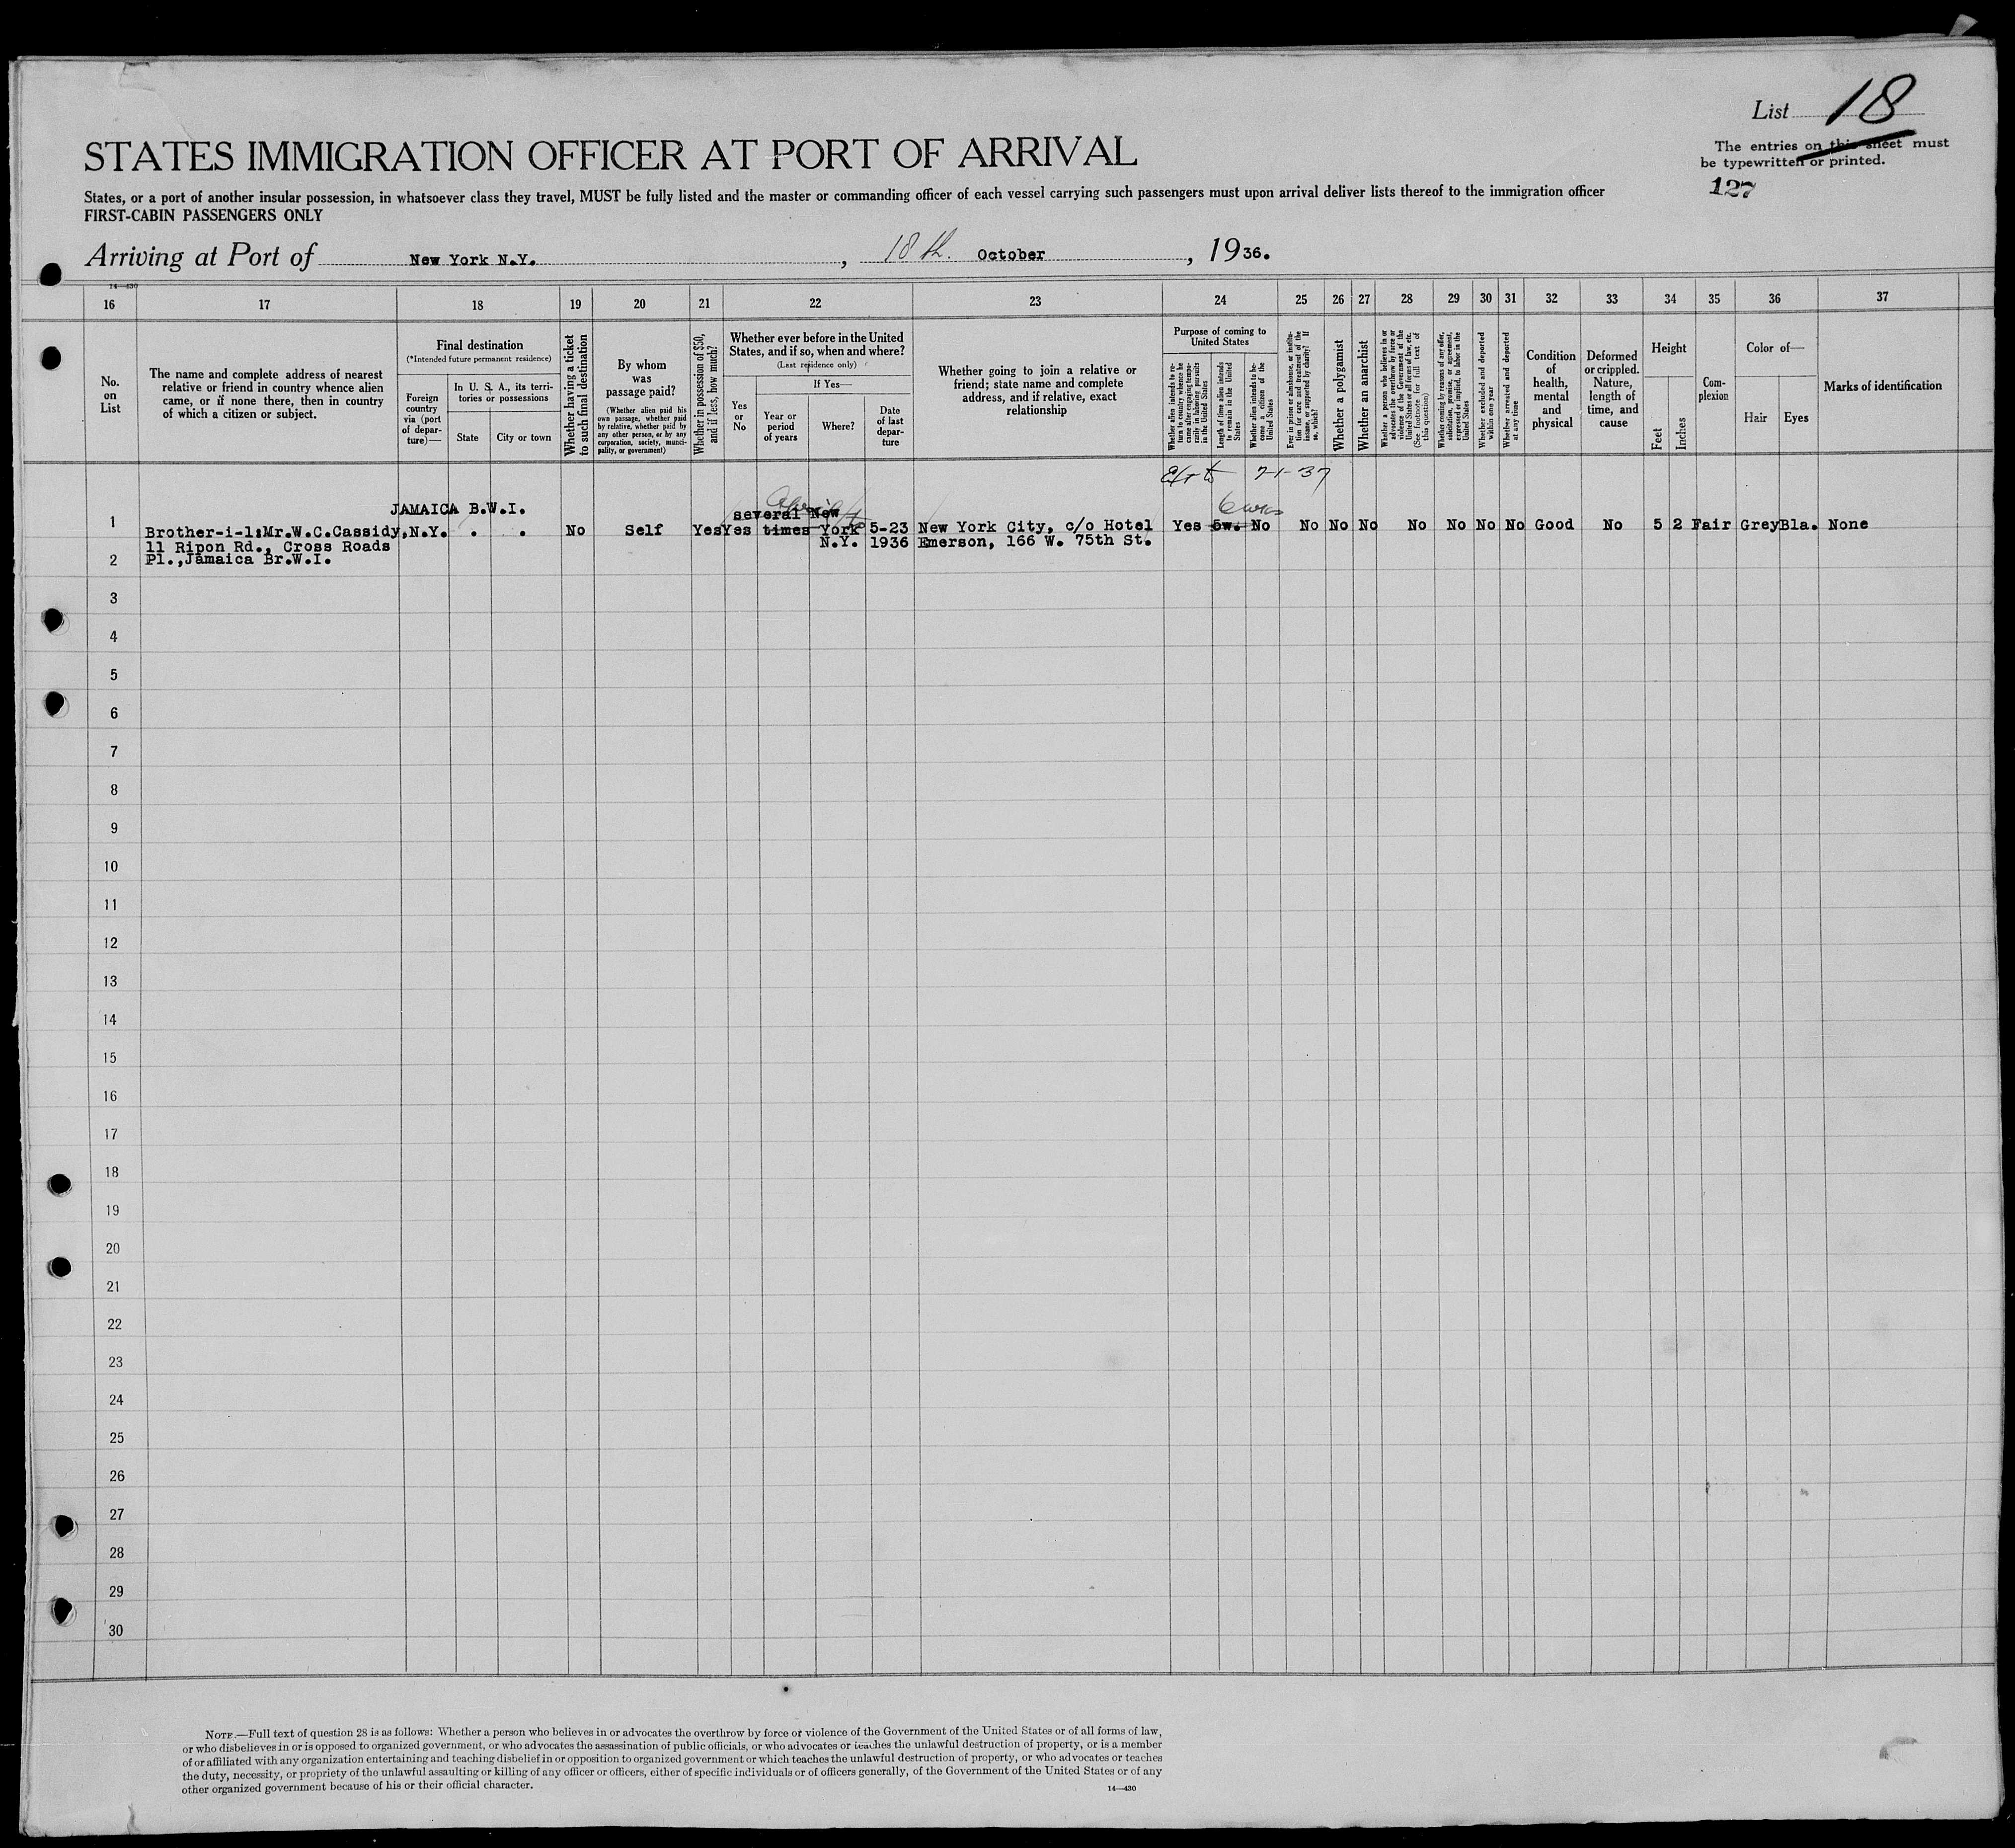 List 18
STATES IMMIGRATION OFFICER AT PORT OF ARRIVAL
The entries on this sheet must
be typewritten or printed.
127
States, or a port of another insular possession, in whatsoever class they travel, MUST be fully listed and the master or commanding officer of each vessel carrying such passengers must upon arrival deliver lists thereof to the immigration officer
FIRST-CABIN PASSENGERS ONLY
Arriving at Port of New York N.Y. , 18th. October , 1936.
14—430
16 17 18 19 20 21 22 23 24 25 26 27 28 29 30 31 32 33 34 35 36 37
No.
on
List
The name and complete address of nearest
relative or friend in country whence alien
came, or if none there, then in country
of which a citizen or subject.
Final destination
(*Intended future permanent residence)
Foreign
country
via (port
of depar-
ture)—
In U. S. A., its terri-
tories or possessions
State
City or town
Whether having a ticket
to such final destination
By whom
was
passage paid?
(Whether alien paid his
own passage, whether paid
by relative, whether paid by
any other person, or by any
corporation, society, munici-
pality, or government)
Whether in possession of $50,
and if less, how much?
Whether ever before in the United
States, and if so, when and where?
(Last residence only)
If Yes—
Yes
or
No
Year or
period
of years
Where?
Date
of last
depar-
ture
Whether going to join a relative or
friend; state name and complete
address, and if relative, exact
relationship
Purpose of coming to
United States
Whether alien intends to re-
turn to country whence he
came after engaging tempo-
rarily in laboring pursuits
in the United States
Length of time alien intends
to remain in the United
States
Whether alien intends to be-
come a citizen of the
United States
Ever in prison or almshouse, or institu-
tion for care and treatment of the
insane, or supported by charity? If
so, which?
Whether a polygamist
Whether an anarchist
Whether a person who believes in or
advocates the overthrow by force or
violence of the Government of the
United States or all forms of law, etc.
(See footnote for full text of
this question)
Whether coming by reasons of any offer,
solicitation, promise, or agreement,
expressed or implied, to labor in the
United States
Whether excluded and deported
within one year
Whether arrested and deported
at any time
Condition
of
health,
mental
and
physical
Deformed
or crippled.
Nature,
length of
time, and
cause
Height
Feet
Inches
Com-
plexion
Color of—
Hair
Eyes
Marks of identification
7-1-37
JAMAICA B.W.I.
several New
1 Brother-i-l:Mr.W.C.Cassidy,N.Y. . . No Self Yes Yes times York 5-23 New York City, c/o Hotel Yes 5w. No No No No No No No No Good No 5 2 Fair Grey Bla. None
11 Ripon Rd., Cross Roads N.Y. 1936 Emerson, 166 W. 75th St.
2 Pl.,Jamaica Br.W.I.
3
4
5
6
7
8
9
10
11
12
13
14
15
16
17
18
19
20
21
22
23
24
25
26
27
28
29
30
NOTE.—Full text of question 28 is as follows: Whether a person who believes in or advocates the overthrow by force or violence of the Government of the United States or of all forms of law,
or who disbelieves in or is opposed to organized government, or who advocates the assassination of public officials, or who advocates or teaches the unlawful destruction of property, or is a member
of or affiliated with any organization entertaining and teaching disbelief in or opposition to organized government or which teaches the unlawful destruction of property, or who advocates or teaches
the duty, necessity, or propriety of the unlawful assaulting or killing of any officer or officers, either of specific individuals or of officers generally, of the Government of the United States or of any
other organized government because of his or their official character.
14—430